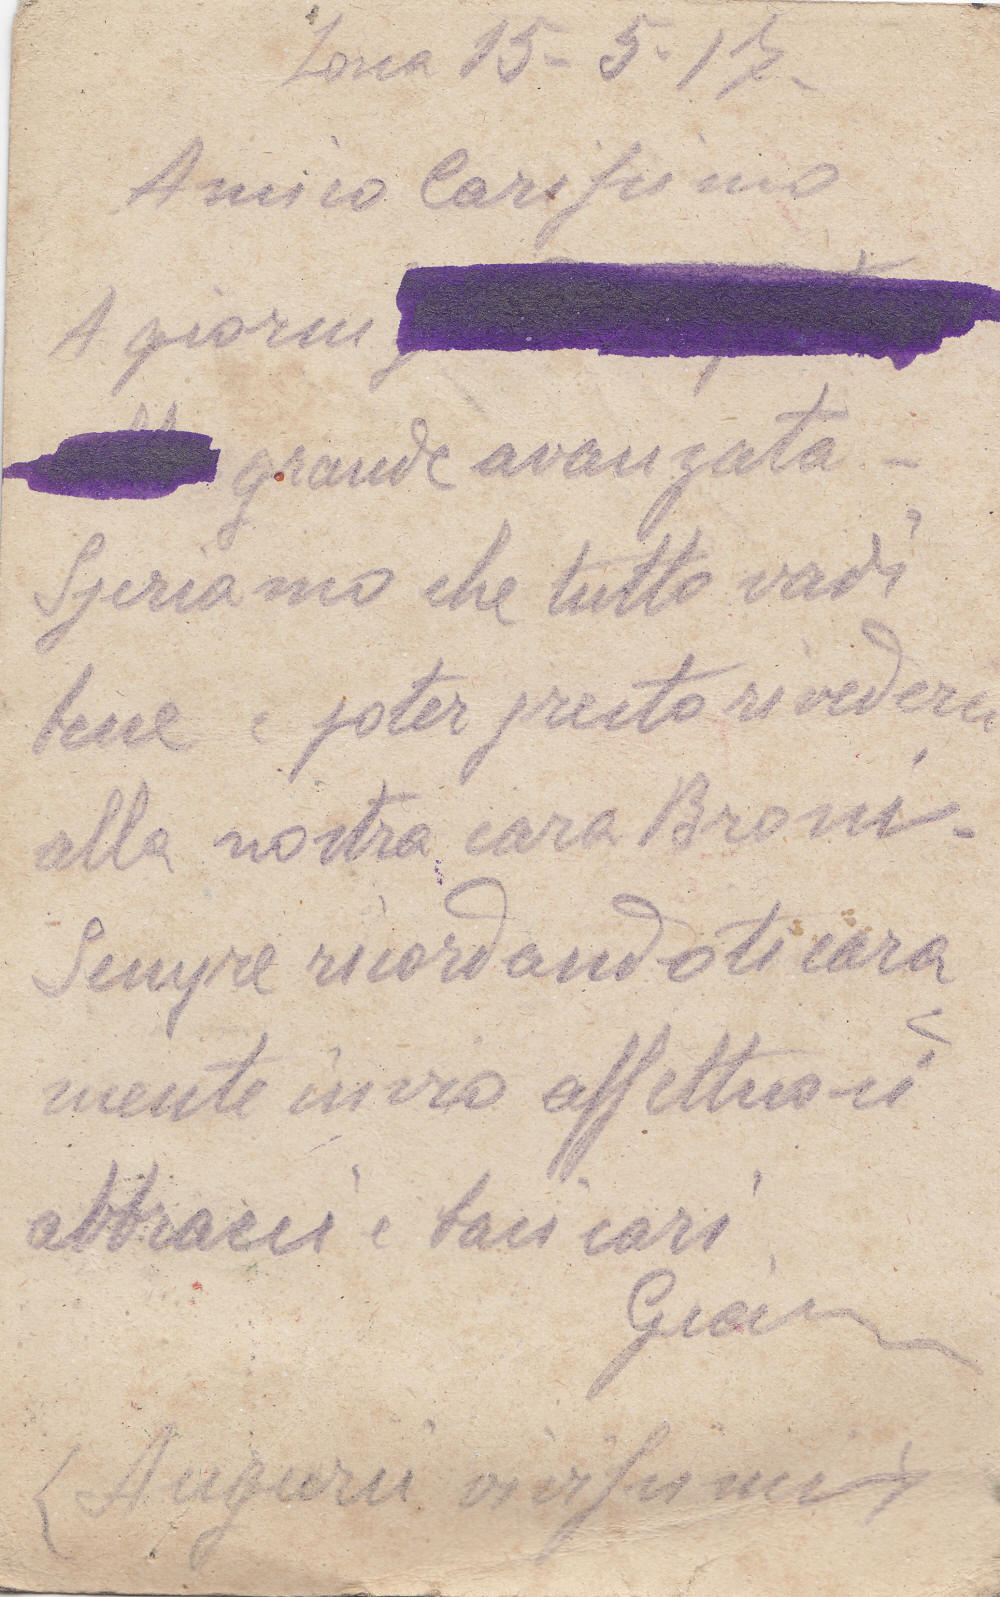 Zona 15-5-17.
Amico Carissimo
A giorni
grande avanzata -
Speriamo che tutto vadi
bene e poter presto rivederci
alla nostra cara Broni -
Sempre ricordandoti cara
mente invio affettuosi
abbracci e baci cari
(Auguri vivissimi)